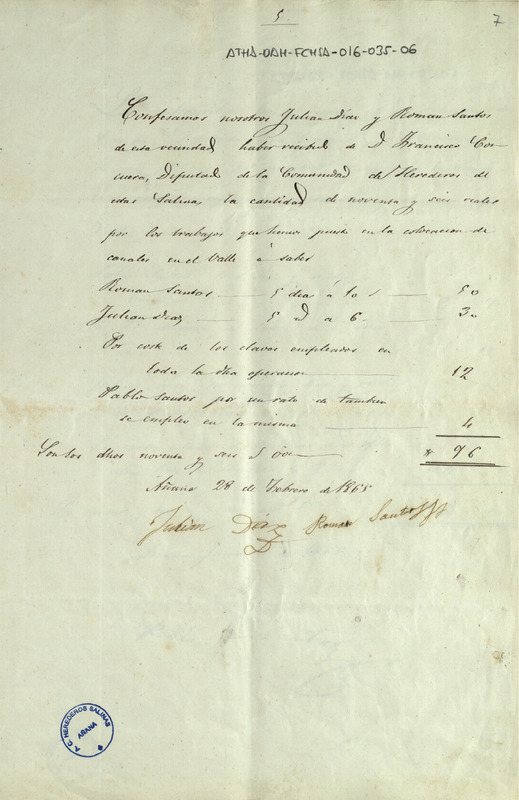 5.
7
ATHA-DAH-FCHSA-016-035-06
Confesamos nosotros Julian Diaz y Roman Santos
de esta vecindad haber recibido de D Francisco Cor
cuera, Diputado de la Comunidad de Herederos de
estas Salinas, la cantidad de noventa y seis reales
por los trabajos que hemos puesto en la colocacion de
canales en el Valle á saber
Roman Santos 5 dias á 10 50
Julian Diaz 5 D a 6 30
Por coste de los clavos empleados en
toda la dha operacion 12
Pablo Santos por un rato de tambien
se empleo en la misma 4
Son los dhos noventa y seis 96
Añana 28 de Febrero de 1865
Julian Diaz Roman Santos
A. C. HEREDEROS SALINAS
AÑANA